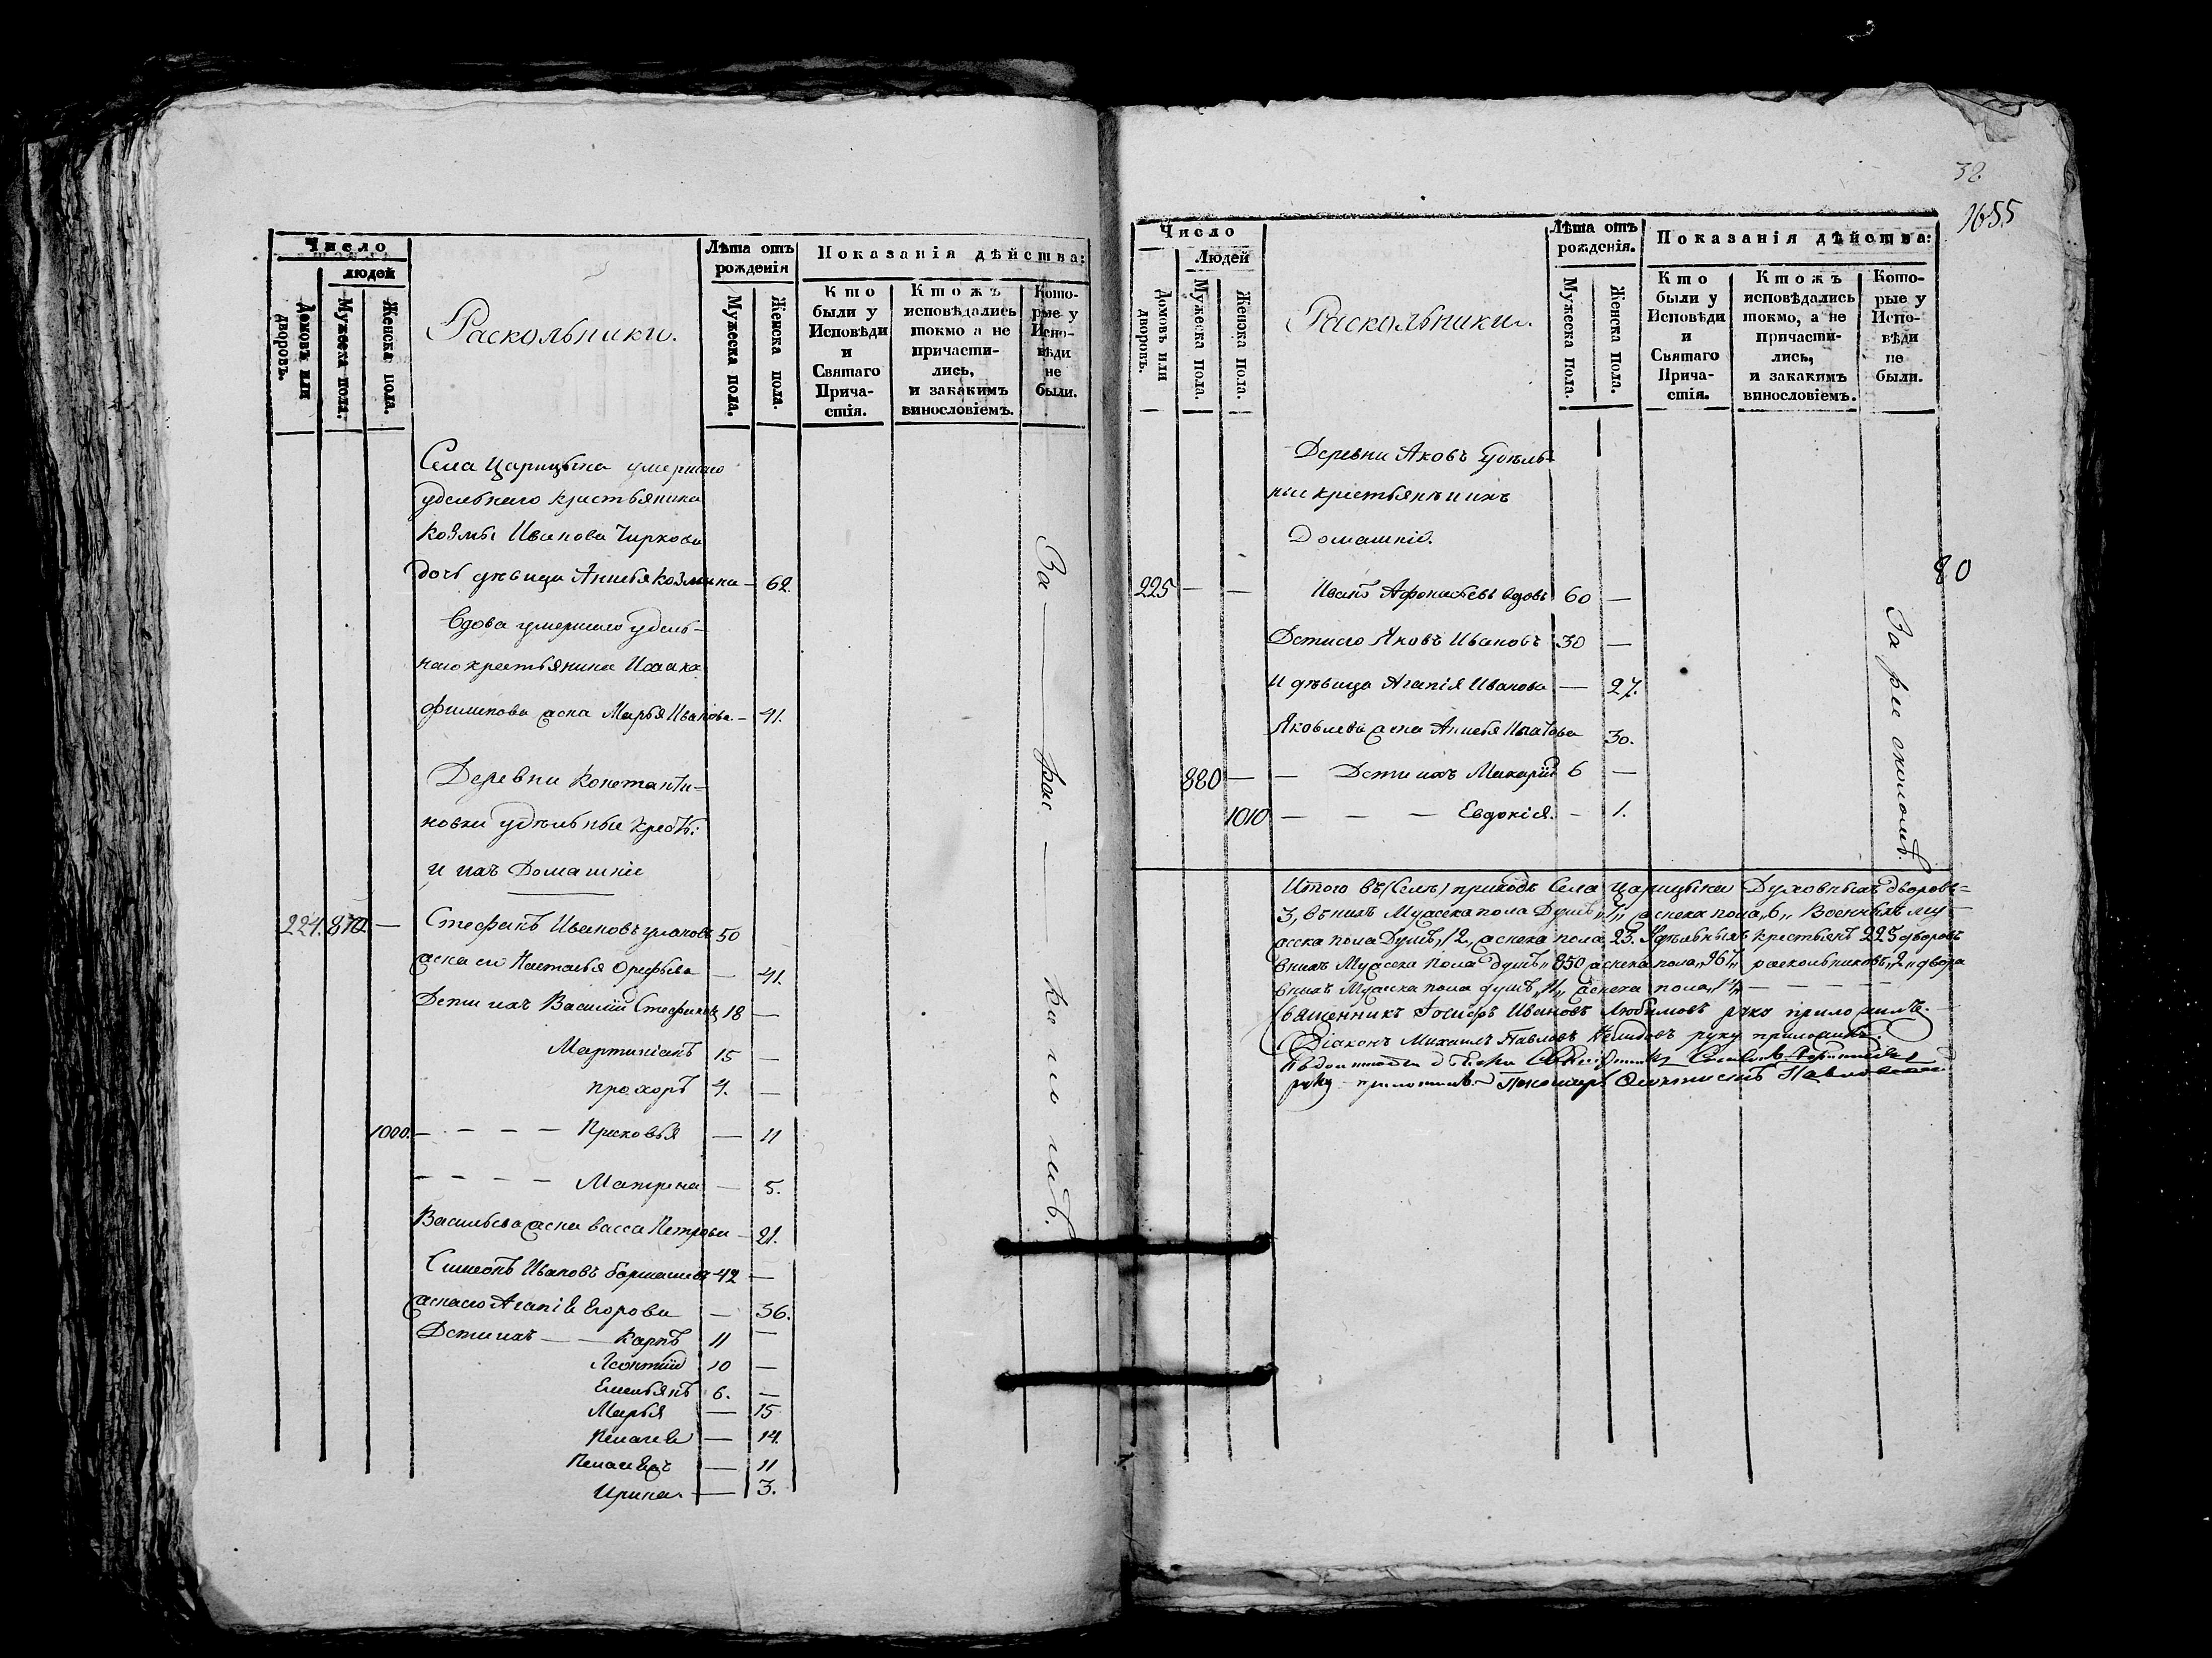 Число
людей
Домовъ или дворовъ.
Мужеска пола.
Женска пола.
Раскольники.
Лѣта отъ рожденія
Мужеска пола.
Женска пола.
Показанія дѣйства:
Кто были у Исповѣди и Святаго Причастія.
Ктожъ исповѣдались токмо а не причастились, и закакимъ винословіемъ.
Которые у Исповѣди не были.
Села Царицына умершаго
удельнаго крестьянина
Козмы Иванова Чиркова
дочь дѣвица Анисья Козмина — 62.
Вдова умершаго удель-
наго крестьянина Исаака
Филипова жена Марья Иванова — 41.
Деревни Константи-
новки удѣльные крест:
и ихъ Домашніе
224. 870. — Стефанъ Ивановъ 50
жена его Настасья Орефьева — 41.
Дети ихъ Василий Стефановъ 18 —
Мартиніанъ 15 —
Прохоръ 4. —
1000. — — — — Прасковья — 11
— — — — Матрена — 5.
Васильева жена Васса Петрова — 21.
Симеонъ Ивановъ 42 —
жена его Агапія Егорова — 36.
Дети ихъ — — Карпъ 11 —
Леонтий 10 —
Емельянъ 6. —
Марья — 15
Пелагея — 14.
— 11
Ирина — 3.
За рас- коломъ.
32.
1655
Число
Людей
Домовъ или дворовъ.
Мужеска пола.
Женска пола.
Раскольники.
Лѣта отъ рожденія.
Мужеска пола.
Женска пола.
Показанія дѣйства:
Кто были у Исповѣди и Святаго Причастія.
Ктожъ исповѣдались токмо, а не причастились, и закакимъ винословіемъ.
Которые у Исповѣди не были.
Деревни Аковъ Удѣль-
ные крестьянѣ и ихъ
Домашніе.
225 — — Иванъ Афонасьевъ вдовъ 60 —
Дети его Яковъ Ивановъ 30 —
И дѣвица Агапія Иванова — 27.
Яковлева жена Анисья Игнатова 30.
880 — — Дети ихъ Макарий 6 —
1010 — — — Евдокія. — 1.
За рас коломъ.
80
Итого въ (семъ) приходѣ Села Царицына Духовныхъ дворовъ=
3, вънихъ Мужеска пола Душъ „7„ женска пола „6„ Военныхъ му-
жеска пола Душъ „12„ женска пола 23. Удѣльныхъ крестьянъ 225 дворовъ
внихъ Мужеска пола душъ „850 женска пола „967„ раскольниковъ „2„ двора
внихъ Мужеска пола душъ „11„ женска пола „14„ — — — —
Священникъ Іосифъ Ивановъ Любимовъ руку приложилъ.
Діаконъ Михаилъ Павловъ руку приложилъ.
руку приложилъ. Пономарь Павловъ